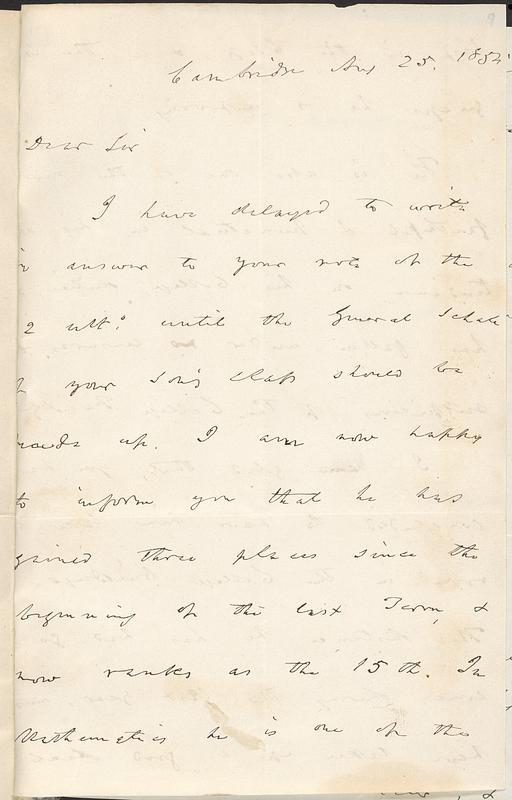 Cambridge Aug 25. 185
Dear Sir
I have delayed to write
in answer to your note of the
2 ult.o until the General Scale
of your Son's Class should be
made up. I am now happy
to inform you that he has
gained three places since the
beginning of the last Term, &
now ranks as the 15th. In
Mathematics he is one of the